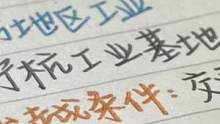 地区工业
杭工业基地
成条件:交